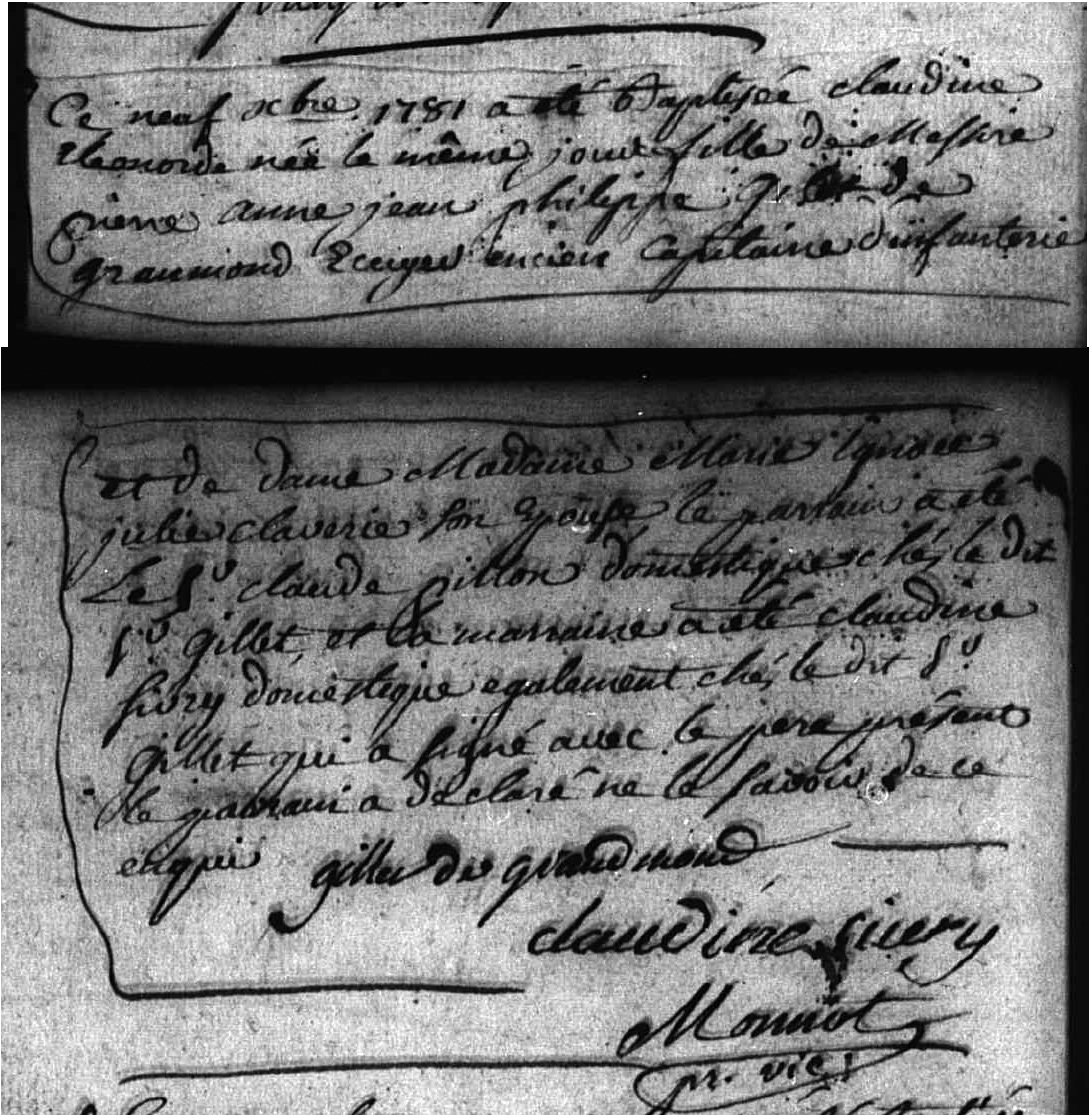 Ce neuf xbre 1781 a été Baptisée claudine
Eleonorde née le même jour fille de Messire
pierre anne jean philippe gillet de
grammond Ecuyer encien Capitaine d'infanterie
et de dame Madame Marie Ignace
julie claverie son Epouse, le parrain a été
Le Sr. claude pillon domestique chés le dit
Sr gillet, et la marraine a été claudine
sivry domestique egalement chés le dit Sr
Gillet qui a signé avec le pere présent
le parrain a déclaré ne le savoir de ce
enqui gillet de grandmond
claudine sivery
Monniot
pr. vic: